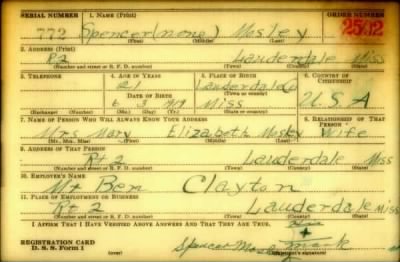 SERIAL NUMBER 1. NAME (Print) ORDER NUMBER
772 Spencer (none) Mosley 2502
(First) (Middle) (Last)
2. ADDRESS (Print)
R2 Lauderdale Miss
(Number and street or R. F. D. number) (Town) (County) (State)
3. TELEPHONE 4. AGE IN YEARS 5. PLACE OF BIRTH 6. COUNTRY OF CITIZENSHIP
21 Lauderdale Co
DATE OF BIRTH (Town or county)
6 3 1919 Miss U.S.A
(Exchange) (Number) (Mo.) (Day) (Yr.) (State or country)
7. NAME OF PERSON WHO WILL ALWAYS KNOW YOUR ADDRESS 8. RELATIONSHIP OF THAT PERSON
Mrs Mary Elizabeth Mosley Wife
(Mr., Mrs., Miss) (First) (Middle) (Last)
9. ADDRESS OF THAT PERSON
Rt 2 Lauderdale Miss
(Number and street or R. F. D. number) (Town) (County) (State)
10. EMPLOYER'S NAME
Mr Ben Clayton
11. PLACE OF EMPLOYMENT OR BUSINESS
Rt 2 Lauderdale Miss
(Number and street or R. F. D. number) (Town) (County) (State)
I AFFIRM THAT I HAVE VERIFIED ABOVE ANSWERS AND THAT THEY ARE TRUE. his
+
REGISTRATION CARD
D. S. S. Form 1 Spencer Mosley mark
(Registrant's signature)